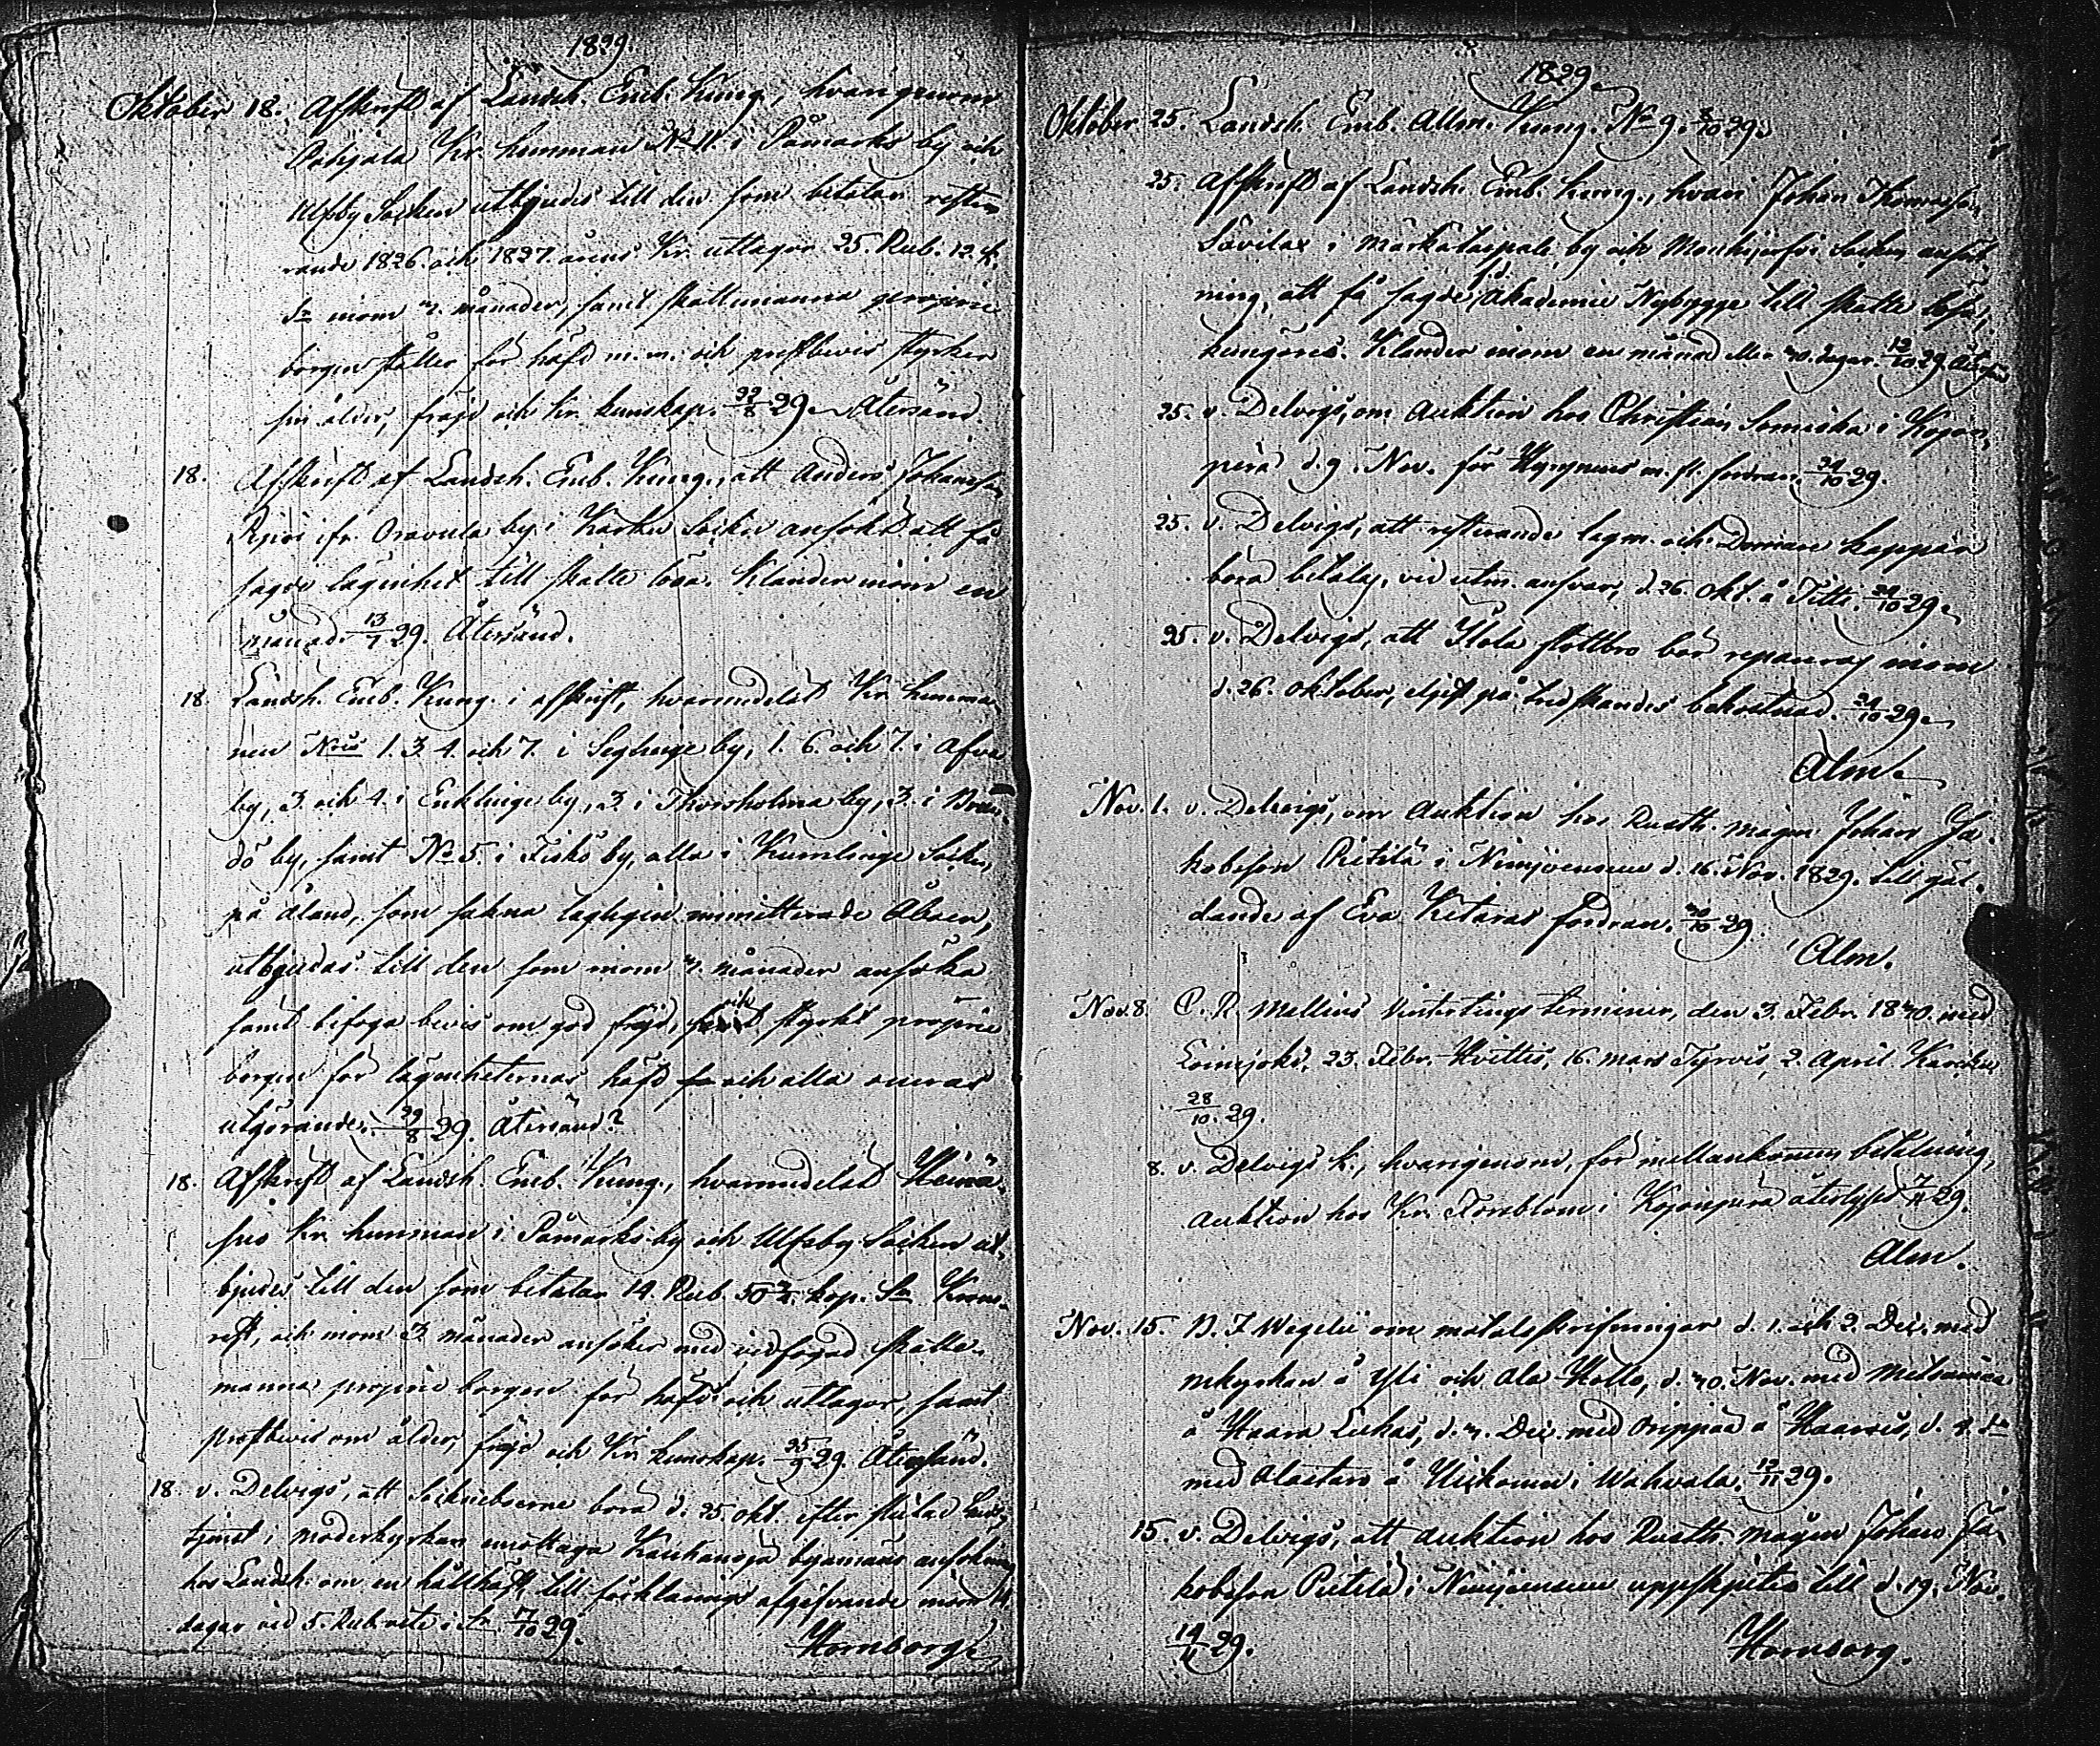 1829.
Oktober 18. Afskrift af Landsh. Emb. Kung., hvarigenom
Pohjala Kr. hemman No 11. i Påmarks by och
Ulfsby Socken utbjudes till den som betalar reste-
rande 1826. och 1827. årens Kr. utlagor 25. Rub. 12. k.
Sr inom 2. månader, samt skattemanna proprie
borgen ställer för häfd m.m. och prestbevis styrker
sin ålder, fräjd och Kr. kunskap. 22/8 29. Återsänd.
18. Afskrift af Landsh. Emb. Kung., att Anders Johansson
ifr. Oravula by i Karku Socken ansökt att få
sagde lägenhet till skatte lösa. Klander inom en
månad. 13/7 29. Återsänd.
18. Landsh. Emb. Kung. i afskrift, hvarmedelst Kr. hemma-
nen Nris 1. 3. 4. och 7. i Seglinge by, 1. 6. och 7. i Afva
by, 3. och 4. i Enklinge by, 3. i Thorsholma by, 3. i Brän-
dö by, samt No 5. i Fiskö by, alla i Kumlinge Socken,
på Åland, som sakna lagligen immitterade Åboer,
utbjudas till den som inom 2. månader ansöka
samt bifoga bevis om god fräjd, och styrkt proprie
borgen för lägenheternas häfd och alla oneras
utgörande. 29/8 29. Återsänd?
18. Afskrift af Landsh. Emb. Kung., hvarmedelst Heinä-
suo Kr. hemman i Påmarks by och Ulfsby Socken ut-
bjudes till den som betalar 14. Rub. 50 3/4. kop. Sr Krono-
rest, och inom 3. månader ansöker med vidfogad skatte-
manna proprie borgen för häfd och utlagor, samt
prestbevis om ålder, fräjd och Kr. kunskap. 25/9 29. Återsänd.
18. v. Delvigs, att Sockneboerne böra d. 25. Okt. efter slutad Guds-
tjenst i moderkyrkan emottaga byamäns ansökning
hos Landsh. om en hållhäst, till förklarings afgifvande inom 14.
dagar vid 5. Rub. vite i Sr 7/10 29.
Hornborg.
1829.
Oktober 25. Landsh. Emb. Allm. Kung. No 9. 5/10 29.
25. Afskrift af Landsh. Emb. Kung., hvari Johan Thomasson
Savilax i by och Mouhijerfvi Socken ansök-
ning, att få sagde f.d. Akademie Nybygge till skatte lösa,
kungöres. Klander inom en månad eller 30. dagar. 12/10 29. Återsän
25. v. Delvigs, om Auktion hos Christian i Kojon-
perä d. 9. Nov. för m. fl. fordran. 24/10 29.
25. v. Delvigs, att resterande lagm. och Domare kappar
böra betalas, vid utm. ansvar, d. 26. Okt. å 24/10 29.
25. v. Delvigs, att Isola flottbro bör repareras inom
d. 26. Oktober, eljest på tredskandes bekostnad. 24/10 29.
Alm.
Nov. 1. v. Delvigs, om Auktion hos Rusth. mågen Johan Ja-
kobsson Pietilä i Niinijoensuu d. 16. Nov. 1829. till gäl-
dande af Eva Ketaras fordran. 30/10 29.
Alm.
Nov. 8. C. R. Mellins Vintertings terminer, den 3. Febr. 1830. med
Loimijoki, 23. Febr. Hvittis, 16. Mars Tyrvis, 2. April Karkku
28/10. 29.
8. v. Delvigs k., hvarigenom, för mellankommen betalning,
Auktion hos Kr. Forsblom i Kojonperä återlyses 7/11 29.
Alm.
Nov. 15. B. F. Wegelii om mötals skrifningar d. 1. och 2. Dec. med
mkyrkan å Yli och Ala Hollo, d. 30. Nov. med Metsämaa
å Haara Lukas, d. 3. Dec. med Orippää å Haarois, d. 4. Sr
med Alastaro å i Wahvala. 12/11 29.
15. v. Delvigs, att Auktion hos Rusth. mågen Johan Ja-
kobsson Pietilä i Niinijoensuu uppskjutes till d. 19. Nov.
14/11 29.
Hornborg.